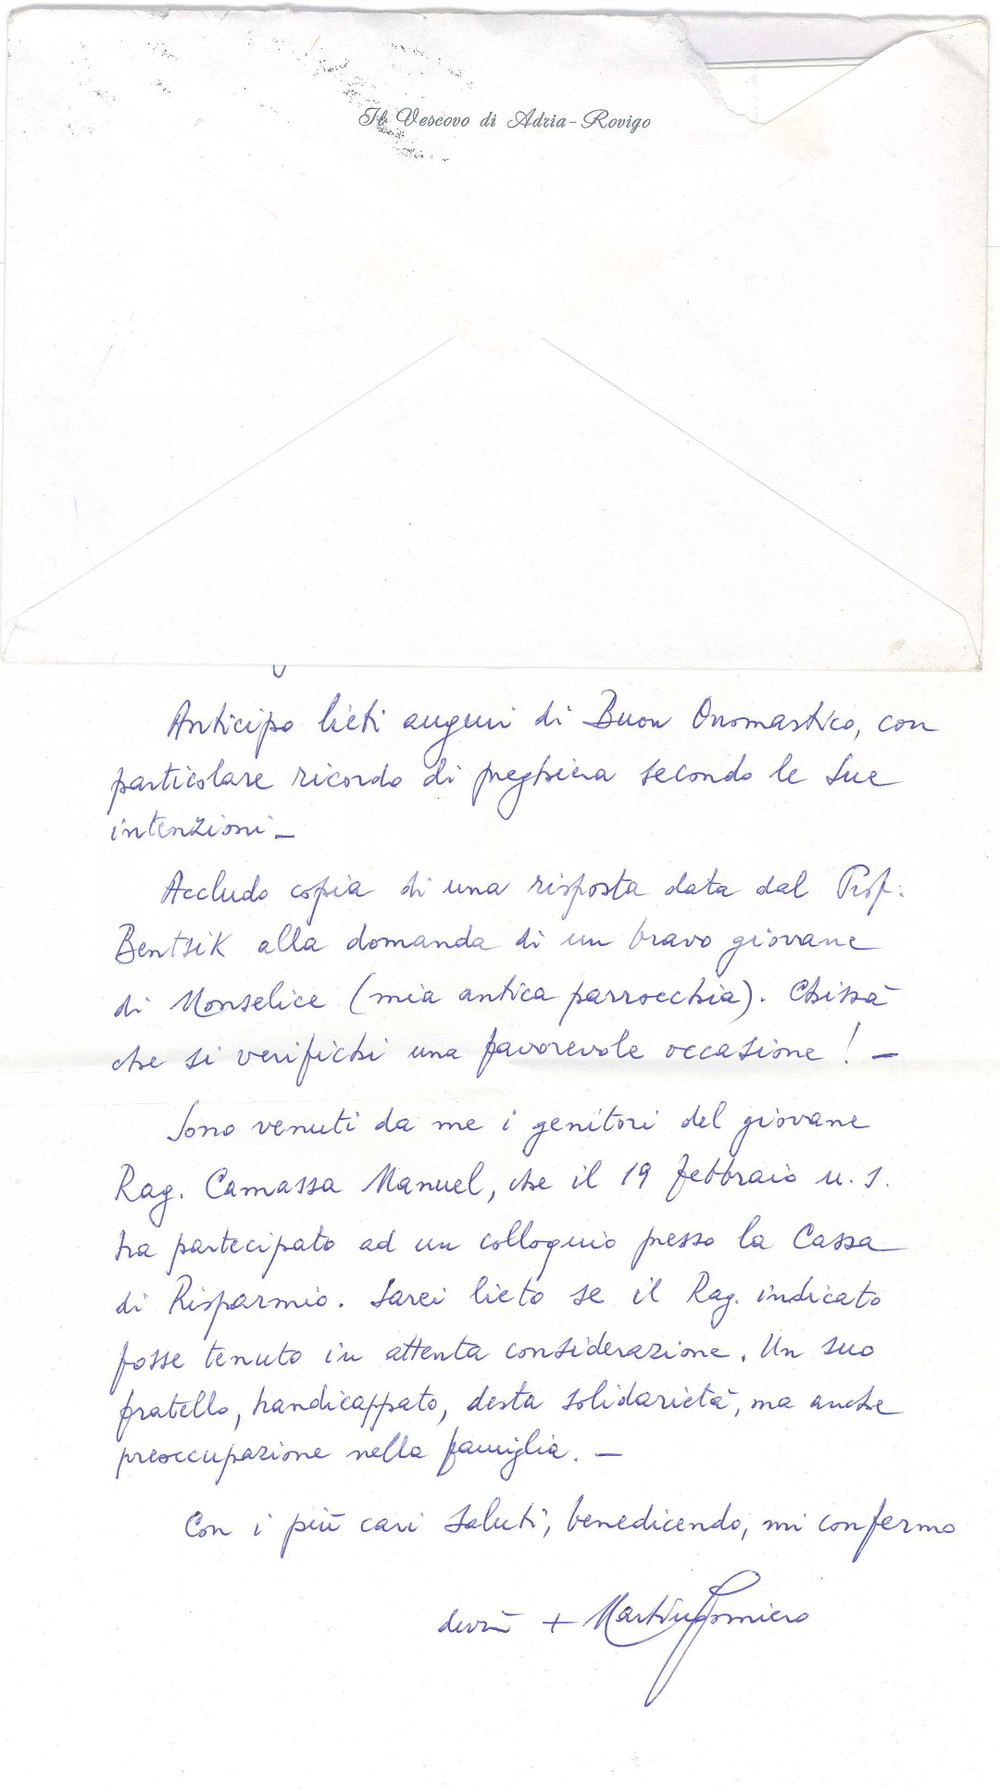 Il Vescovo di Adria-Rovigo
Anticipo lieti auguri di Buon Onomastico, con
particolare ricordo di preghiera secondo le Sue
intenzioni –
Accludo copia di una risposta data dal Prof.
Bentsik alla domanda di un bravo giovane
di Monselice (mia antica parrocchia). Chissà
che si verifichi una favorevole occasione! –
Sono venuti da me i genitori del giovane
Rag. Camassa Manuel, che il 19 febbraio u.s.
ha partecipato ad un colloquio presso la Cassa
di Risparmio. Sarei lieto se il Rag. indicato
fosse tenuto in attenta considerazione. Un suo
fratello, handicappato, desta solidarietà, ma anche
preoccupazione nella famiglia. –
Con i più cari saluti, benedicendo, mi confermo
+ Martino Gomiero